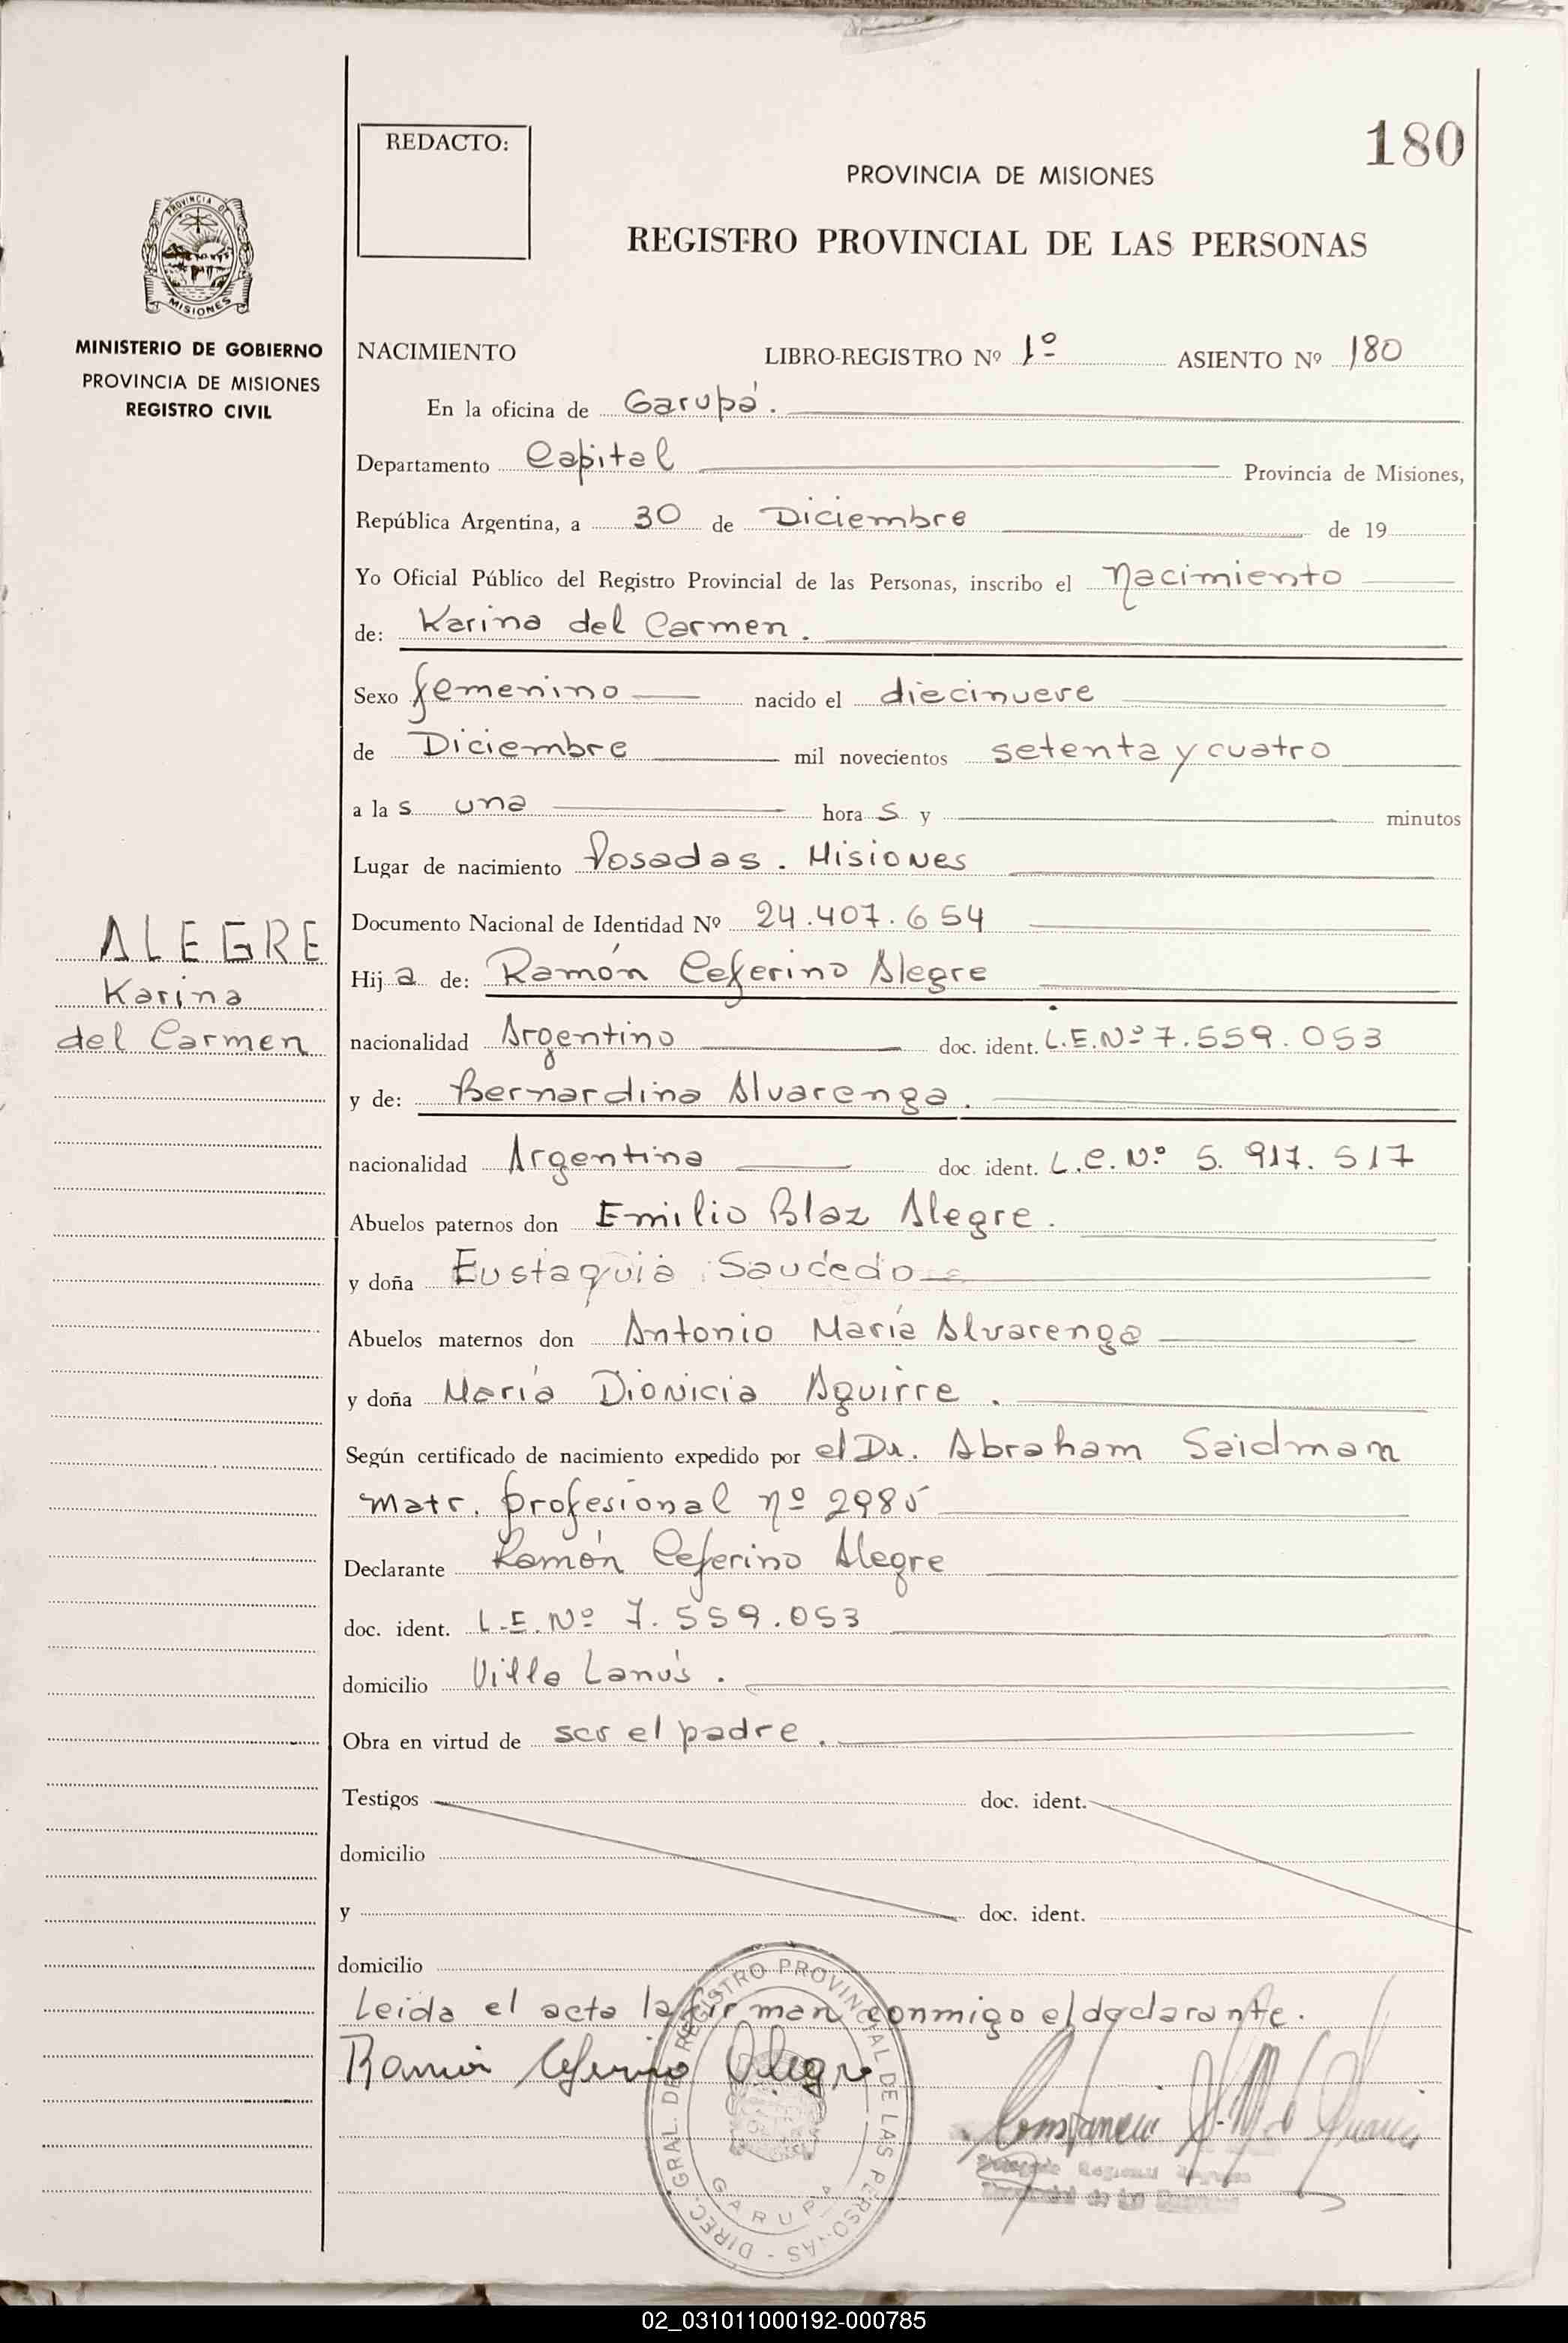 180
REDACTO:
PROVINCIA DE MISIONES
REGISTRO PROVINCIAL DE LAS PERSONAS
PROVINCIA DE
MISIONES
MINISTERIO DE GOBIERNO
PROVINCIA DE MISIONES
REGISTRO CIVIL
NACIMIENTO LIBRO-REGISTRO Nº 1º ASIENTO Nº 180
En la oficina de Garupá.
Departamento Capital Provincia de Misiones,
República Argentina, a 30 de Diciembre de 19
Yo Oficial Público del Registro Provincial de las Personas, inscribo el Nacimiento
de: Karina del Carmen.
Sexo femenino nacido el diecinueve
de Diciembre mil novecientos setenta y cuatro
a la s una hora s y minutos
Lugar de nacimiento Posadas. Misiones
Documento Nacional de Identidad Nº 24.407.654
ALEGRE
Karina
del Carmen
Hij a de: Ramón Ceferino Alegre
nacionalidad Argentino doc. ident. L.E.Nº 7.559.053
y de: Bernardina Alvarenga.
nacionalidad Argentina doc. ident. L.C.Nº 5.917.517
Abuelos paternos don Emilio Blaz Alegre.
y doña Eustaquia Saucedo
Abuelos maternos don Antonio María Alvarenga
y doña María Dionicia Aguirre.
Según certificado de nacimiento expedido por el Dr. Abraham Saidman
Matr. profesional nº 2985
Declarante Ramón Ceferino Alegre
doc. ident. L.E.Nº 7.559.053
domicilio Villa Lanús.
Obra en virtud de ser el padre.
Testigos doc. ident.
domicilio
y doc. ident.
domicilio
Leida el acta la firman conmigo el declarante.
Ramón Ceferino Alegre
DIREC. GRAL. DEL REGISTRO PROVINCIAL DE LAS PERSONAS -
GARUPA
02_031011000192-000785